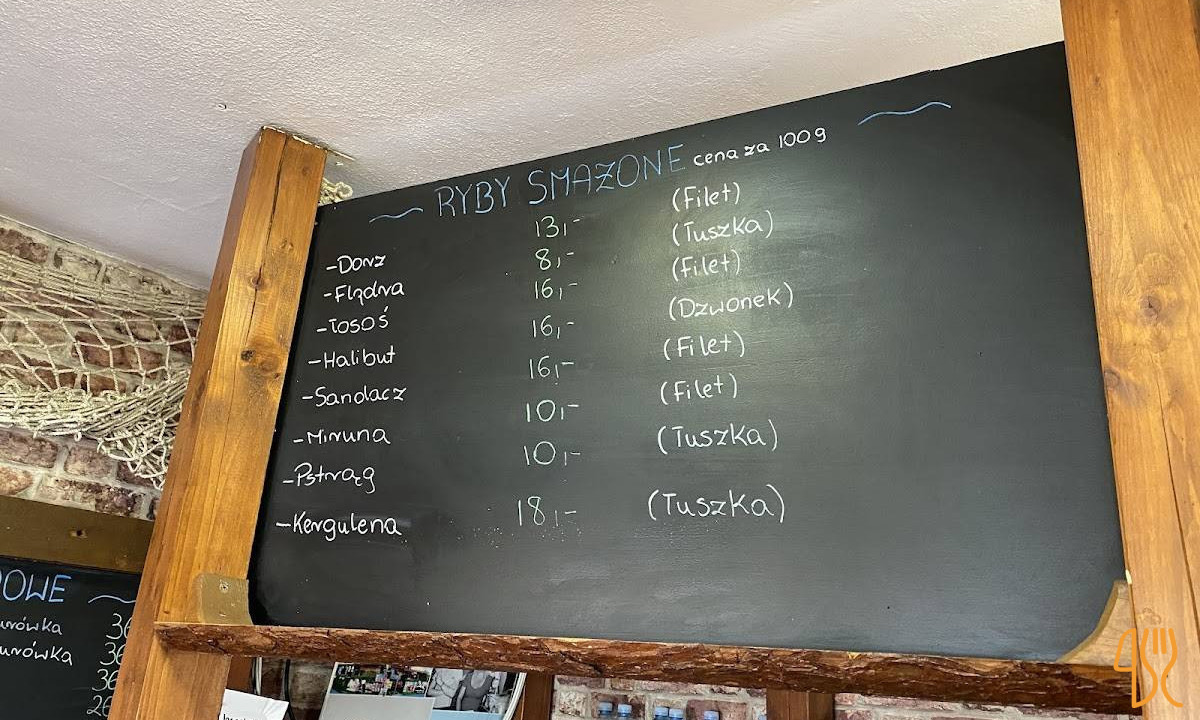 RYBY SMAŻONE cena za 100g
-Dorsz 13,- (Filet)
-Flądra 8,- (Tuszka)
-Łosoś 16,- (Filet)
-Halibut 16,- (Dzwonek)
-Sandacz 16,- (Filet)
-Miruna 10,- (Filet)
-Pstrąg 10,- (Tuszka)
-Kergulena 18,- (Tuszka)
OWE
urówka 36
urówka 36
36
26